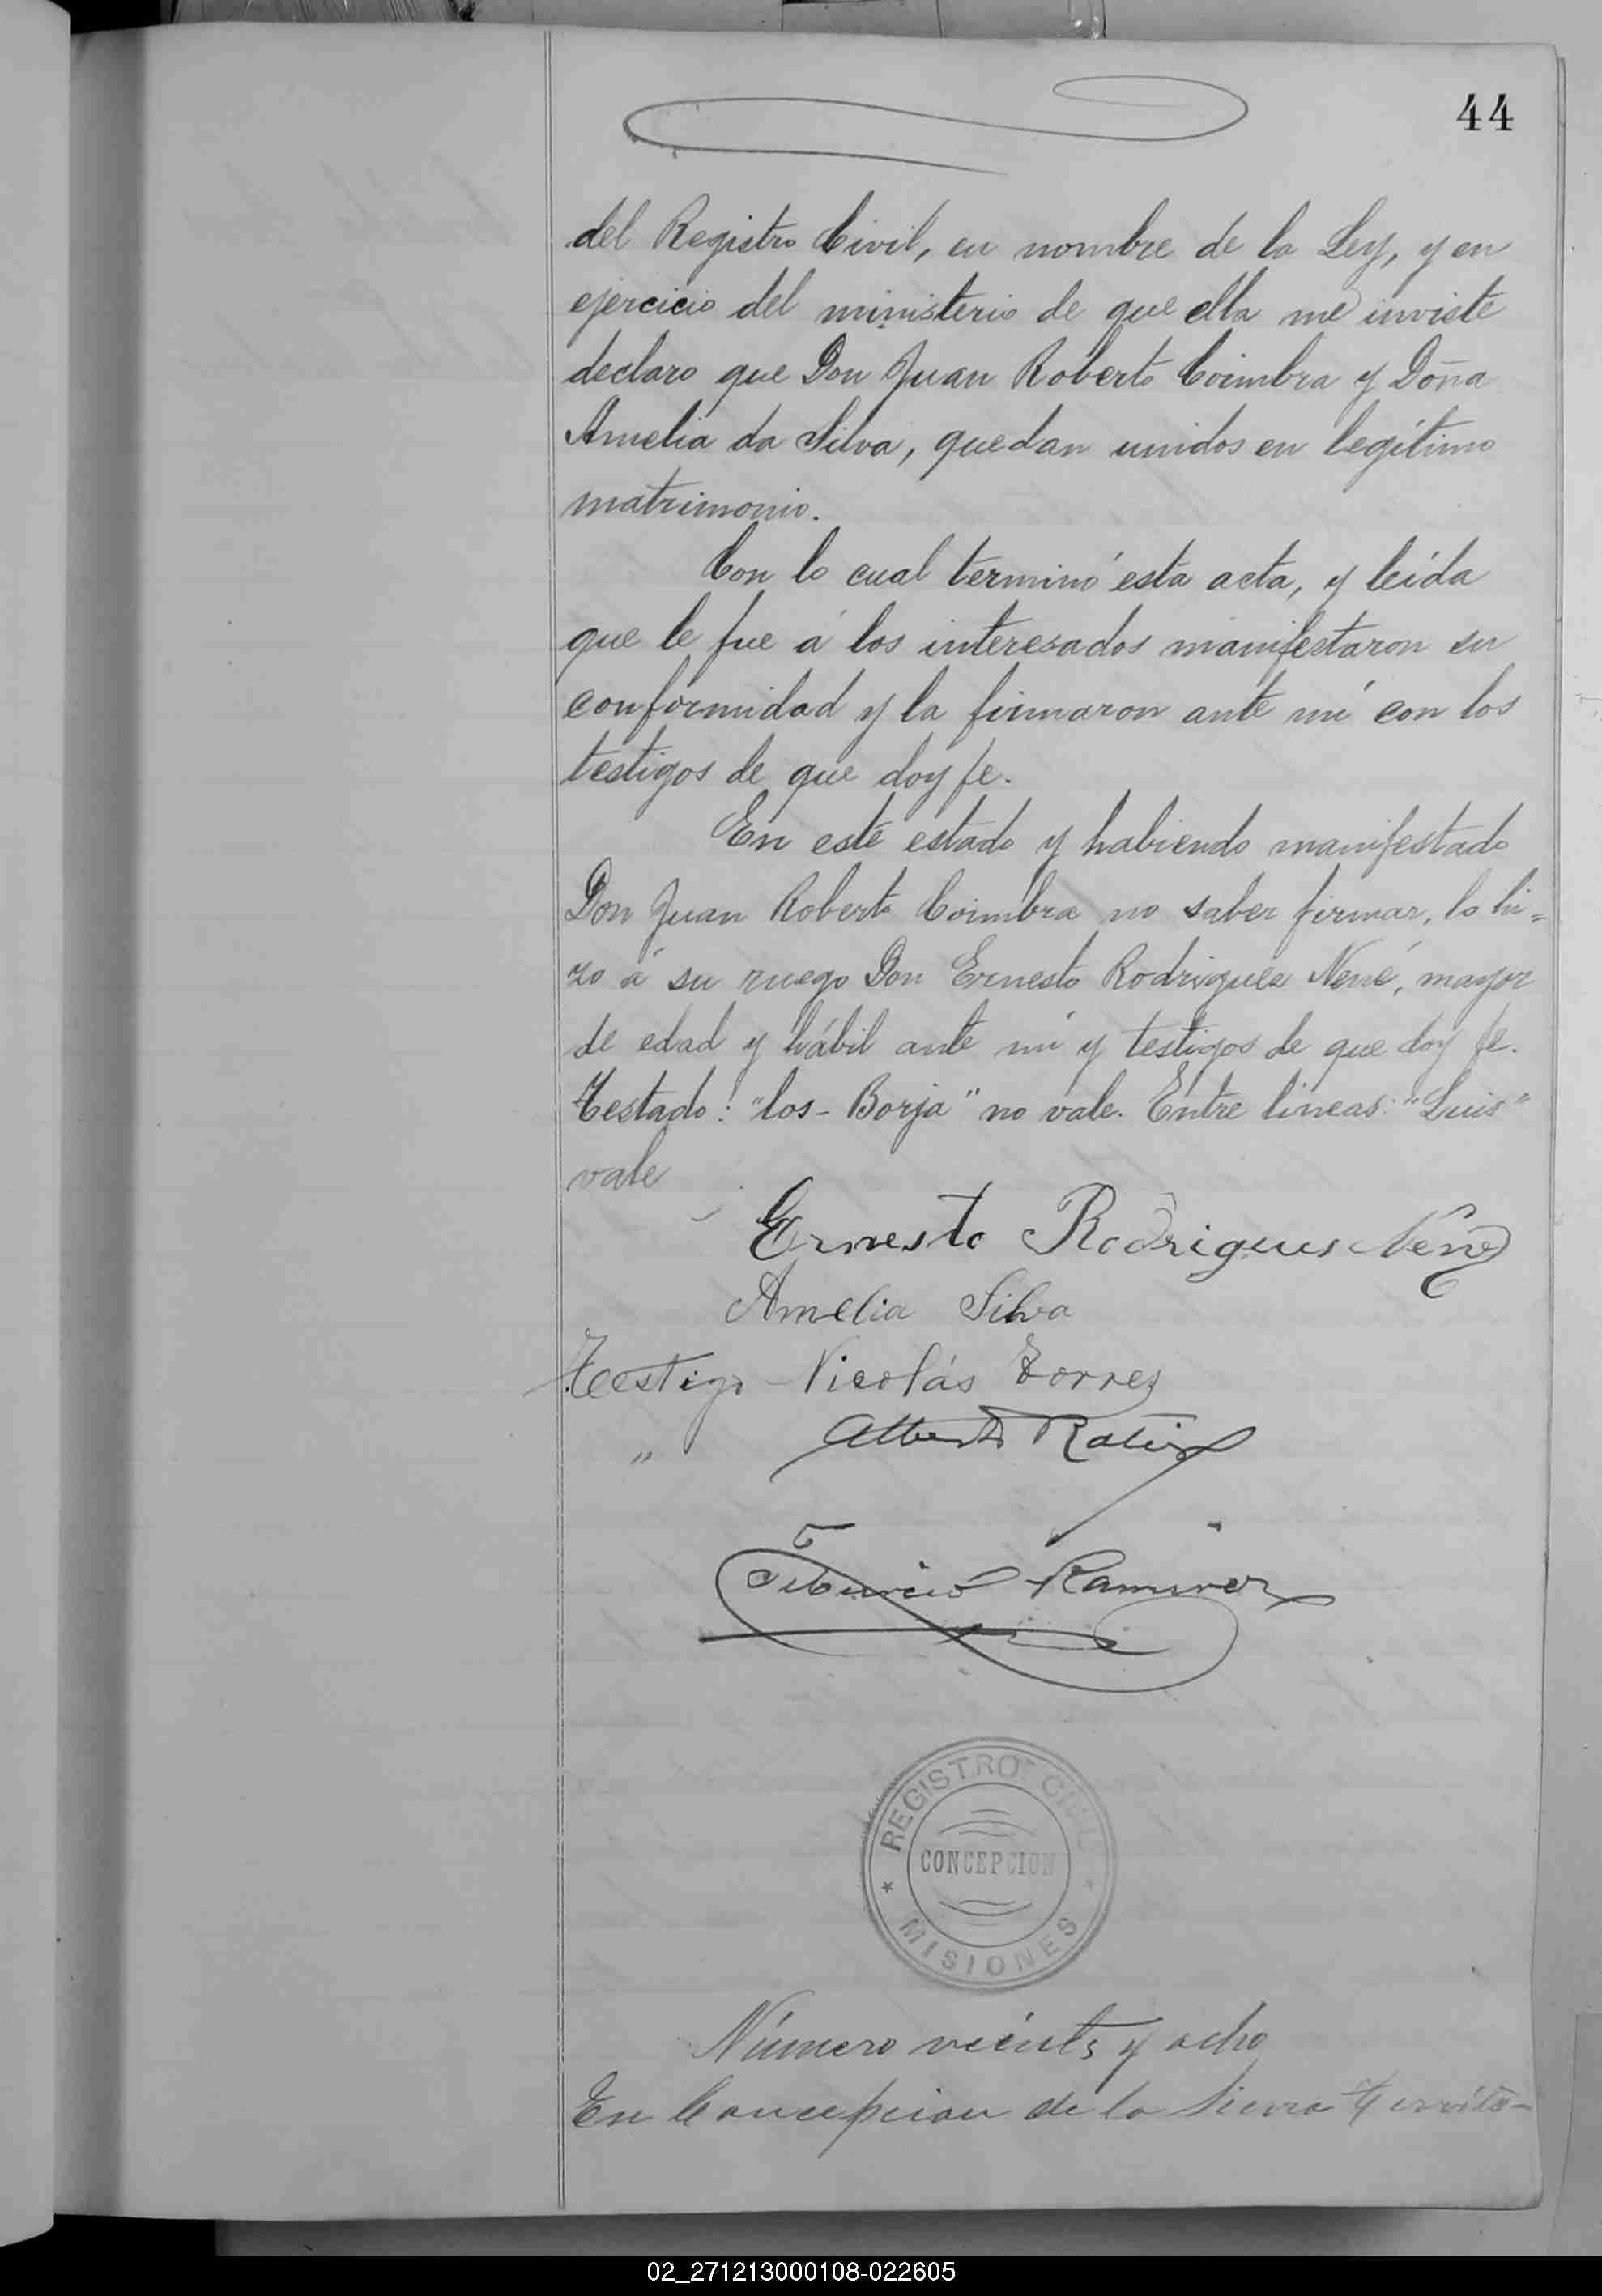 44
del Registro Civil, en nombre de la Ley, y en
ejercicio del ministerio de que ella me inviste
declaro que Don Juan Roberto Coimbra y Doña
Amelia da Silva, quedan unidos en legítimo
matrimonio.
Con lo cual terminó esta acta, y leída
que le fue á los interesados manifestaron su
conformidad y la firmaron ante mí con los
testigos de que doy fe.
En este estado y habiendo manifestado
Don Juan Roberto Coimbra no saber firmar, lo hi=
zo á su ruego Don Ernesto Rodrigues Nené, mayor
de edad y hábil ante mí y testigos de que doy fe.
Testado: "los - Borja" no vale. Entre líneas: "Luis"
vale
Ernesto Rodrigues Nené
Amelia Silva
Testigo Nicolás Torres
" Alberto
Tiburcio Ramirez
REGISTRO CIVIL
CONCEPCION
MISIONES
Número veinte y ocho
En Concepcion de la Sierra Territo-
02_271213000108-022605